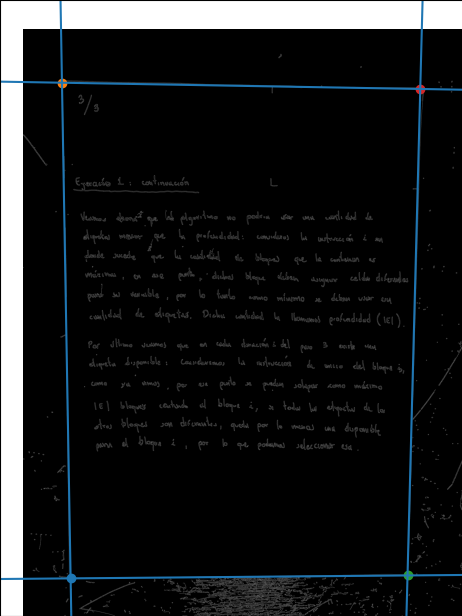 3/3
Ejercicio 1: continuación
Veamos ahora que el algoritmo no podría usar una cantidad de
etiquetas menor que la profundidad: considerar la instrucción i en
donde sucede que la cantidad de bloques que la contienen es
máxima, en ese punto, dichos bloques deben asignar celdas diferentes
para su variable, por lo tanto como mínimo se deben usar esa
cantidad de etiquetas. Dicha cantidad la llamamos profundidad (|E|).
Por último veamos que en cada iteración i del paso 3 existe una
etiqueta disponible: Consideremos la instrucción de inicio del bloque i,
como ya vimos, por ese punto se pueden solapar como máximo
|E| bloques contando al bloque i, si todas las etiquetas de los
otros bloques son diferentes, queda por lo menos una disponible
para el bloque i, por lo que podemos seleccionar esa.